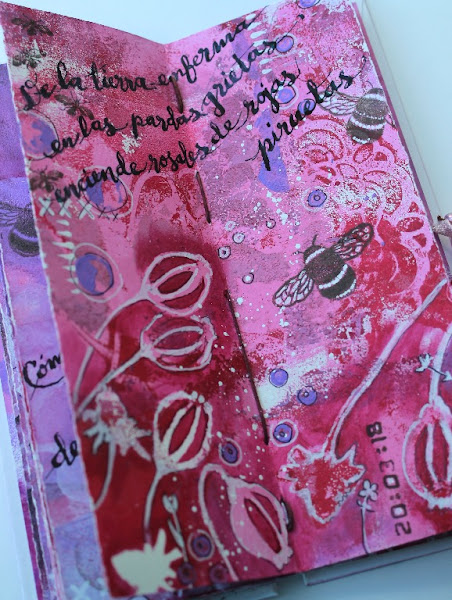 De la tierra enferma
en las pardas grietas
enciende rosales de rojas
piruetas
Cóm
de
20:03:18